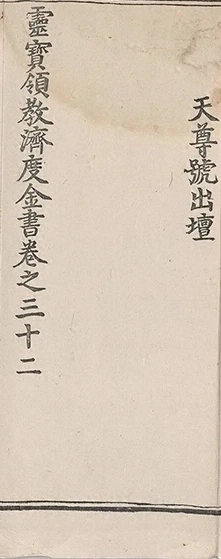 天尊號出壇
靈寶領教濟度金書卷之三十二